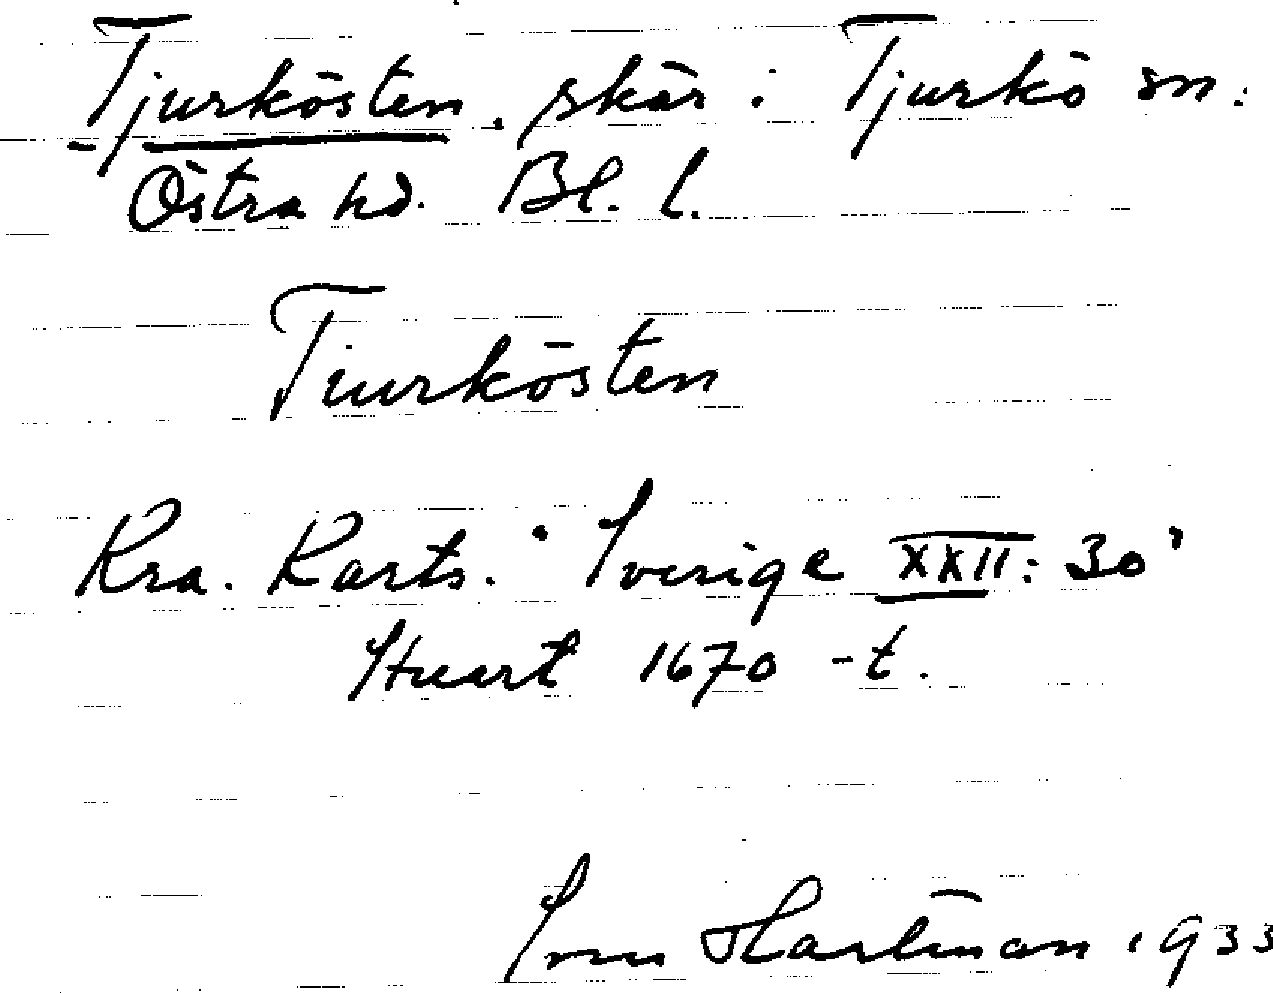 Tjurkösten, skär i Tjurkö sn:
Östra hd. Bl. l.
Tiurkösten
Kra. Karts. "Sverige XXII: 30"
Stuart 1670 -t.
Hartman 1933